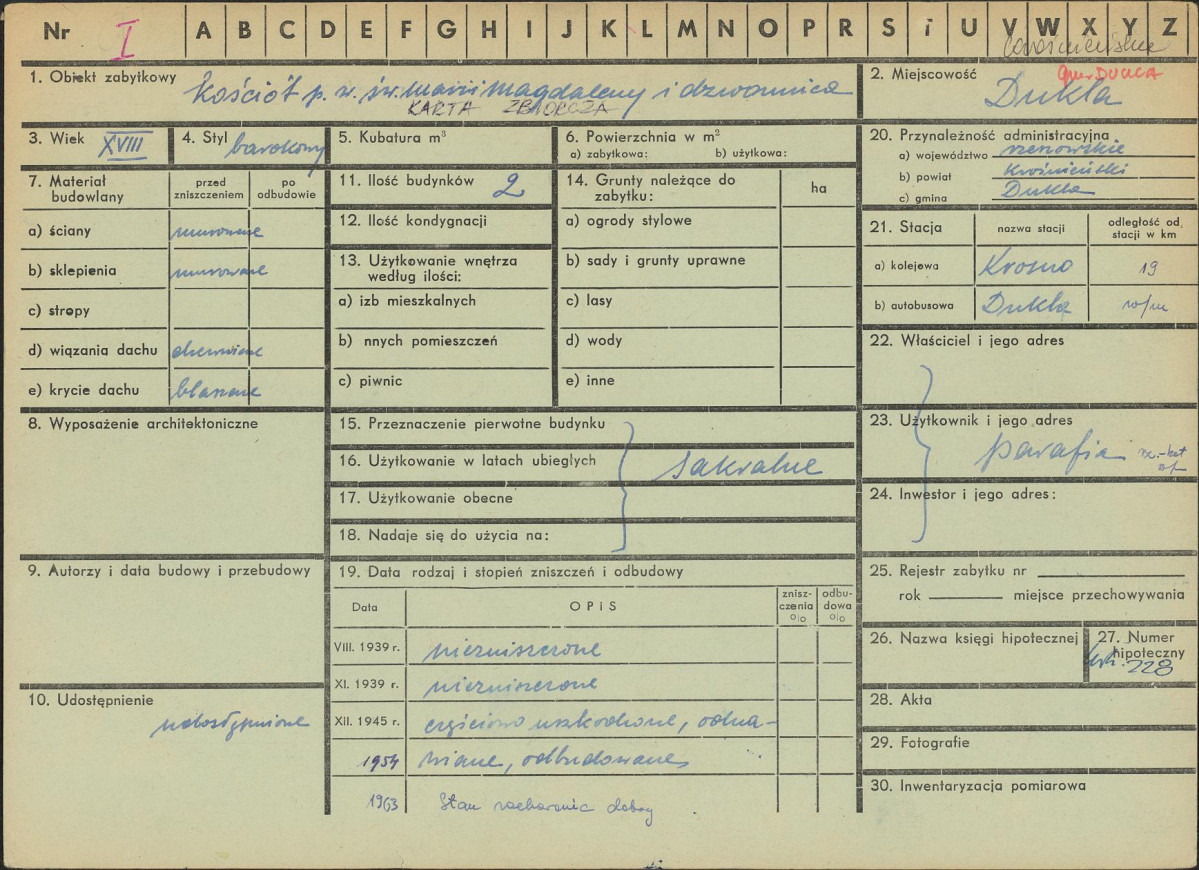 Nr I A B C D E F G H I J K L M N O P R S i U V W X Y Z
1. Obiekt zabytkowy
Kościół p. w. św. Marii Magdaleny i dzwonnica
KARTA ZBIORCZA
2. Miejscowość
gm. DUKLA
Dukla
3. Wiek XVIII
4. Styl barokowy
5. Kubatura m³
6. Powierzchnia w m²
a) zabytkowa: b) użytkowa:
20. Przynależność administracyjna
a) województwo rzeszowskie
b) powiat krośnieński
c) gmina Dukla
7. Materiał budowlany
przed zniszczeniem
po odbudowie
a) ściany murowane
b) sklepienia murowane
c) stropy
d) wiązania dachu drewniane
e) krycie dachu blaszane
11. Ilość budynków 2
12. Ilość kondygnacji
13. Użytkowanie wnętrza
według ilości:
a) izb mieszkalnych
b) nnych pomieszczeń
c) piwnic
14. Grunty należące do
zabytku:
ha
a) ogrody stylowe
b) sady i grunty uprawne
c) lasy
d) wody
e) inne
21. Stacja
nazwa stacji
odległość od
stacji w km
a) kolejowa Krosno 19
b) autobusowa Dukla w/m
22. Właściciel i jego adres
23. Użytkownik i jego adres
parafia rz.-kat
24. Inwestor i jego adres:
8. Wyposażenie architektoniczne
15. Przeznaczenie pierwotne budynku
16. Użytkowanie w latach ubiegłych
sakralne
17. Użytkowanie obecne
18. Nadaje się do użycia na:
9. Autorzy i data budowy i przebudowy
19. Data rodzaj i stopień zniszczeń i odbudowy
Data
OPiS
znisz-
czenia
o/o
odbu-
dowa
o/o
VIII. 1939 r. niezniszczone
XI. 1939 r. niezniszczone
XII. 1945 r. częściowo uszkodzone, odna-
1954 wiane, odbudowane
1963 Stan zachowania dobry
10. Udostępnienie
udostępnione
25. Rejestr zabytku nr
rok miejsce przechowywania
26. Nazwa księgi hipotecznej
27. Numer
hipoteczny
228
28. Akta
29. Fotografie
30. Inwentaryzacja pomiarowa